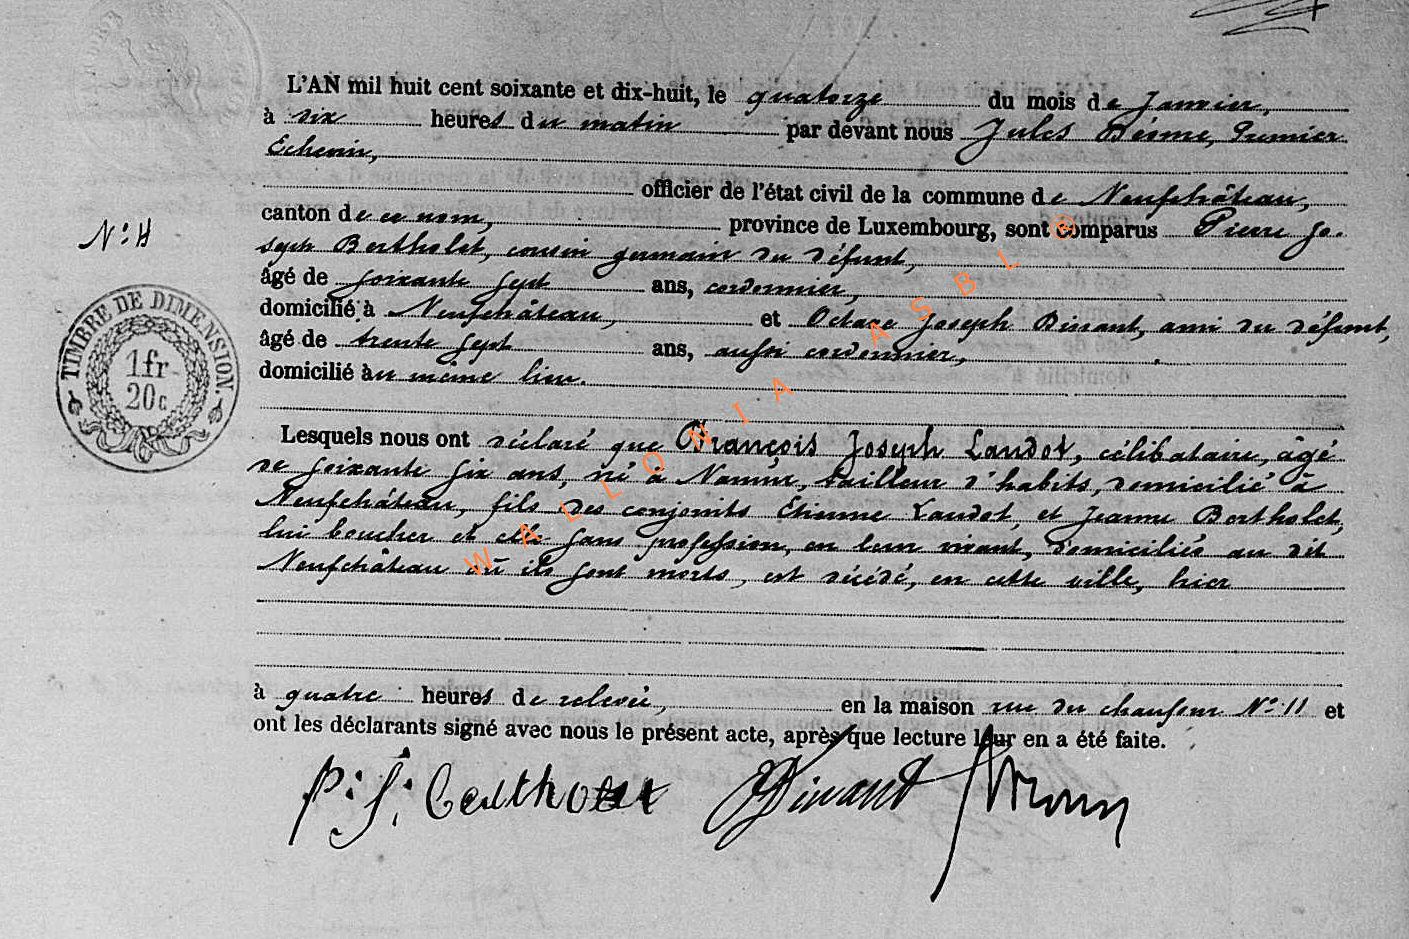 L'AN mil huit cent soixante et dix-huit, le quatorze du mois de Janvier,
à dix heures du matin par devant nous Jules Premier
Echevin,
officier de l'état civil de la commune de Neufchâteau,
canton de ce nom, province de Luxembourg, sont comparus Pierre Jo-
seph Bertholet, cousin germain du défunt,
N°: 4
âgé de soixante sept ans, cordonnier,
domicilié à Neufchâteau, et Octave Joseph Dinant, ami du défunt,
âgé de trente sept ans, aussi cordonnier,
domicilié au même lieu.
TIMBRE DE DIMENSION.
1 fr
20 c
Lesquels nous ont déclaré que François Joseph Laudot, célibataire, âgé
de soixante six ans, né à Namur, tailleur d'habits, domicilié à
Neufchâteau, fils des conjoints Etienne Laudot, et Jeanne Bertholet,
lui boucher et elle sans profession, en leur vivant, domiciliés au dit
Neufchâteau où ils sont morts, est décédé, en cette ville, hier
à quatre heures de relevée, en la maison rue du chaufour N°: 11 et
ont les déclarants signé avec nous le présent acte, après que lecture leur en a été faite.
P: J: Bertholet Dinant
WALLONIA ASBL ®